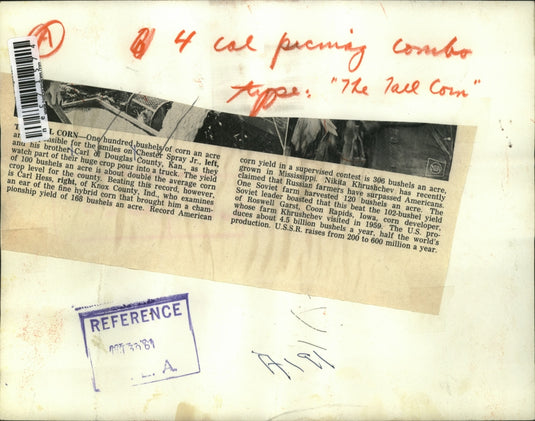 A
4 col picmag combo
type: "The Tall Corn"
CORN—One hundred bushels of corn an acre
for the smiles on Chester Spray Jr., left,
and his brother Carl & Douglas County, Kan., as they
watch part of their huge crop pour into a truck. The yield
of 100 bushels an acre is about double the average corn
crop level for the county. Beating this record, however,
is Carl Hess, right, of Knox County, Ind., who examines
an ear of the fine hybrid corn that brought him a cham-
pionship yield of 168 bushels an acre. Record American
corn yield in a supervised contest is 306 bushels an acre,
grown in Mississippi. Nikita Khrushchev has recently
claimed that Russian farmers have surpassed Americans.
One Soviet farm harvested 120 bushels an acre. The
Soviet leader boasted that this beat the 102-bushel yield
of Roswell Garst, Coon Rapids, Iowa, corn developer,
whose farm Khrushchev visited in 1959. The U.S. pro-
duces about 4.5 billion bushels a year, half the world's
production. U.S.S.R. raises from 200 to 600 million a year.
REFERENCE
L. A.